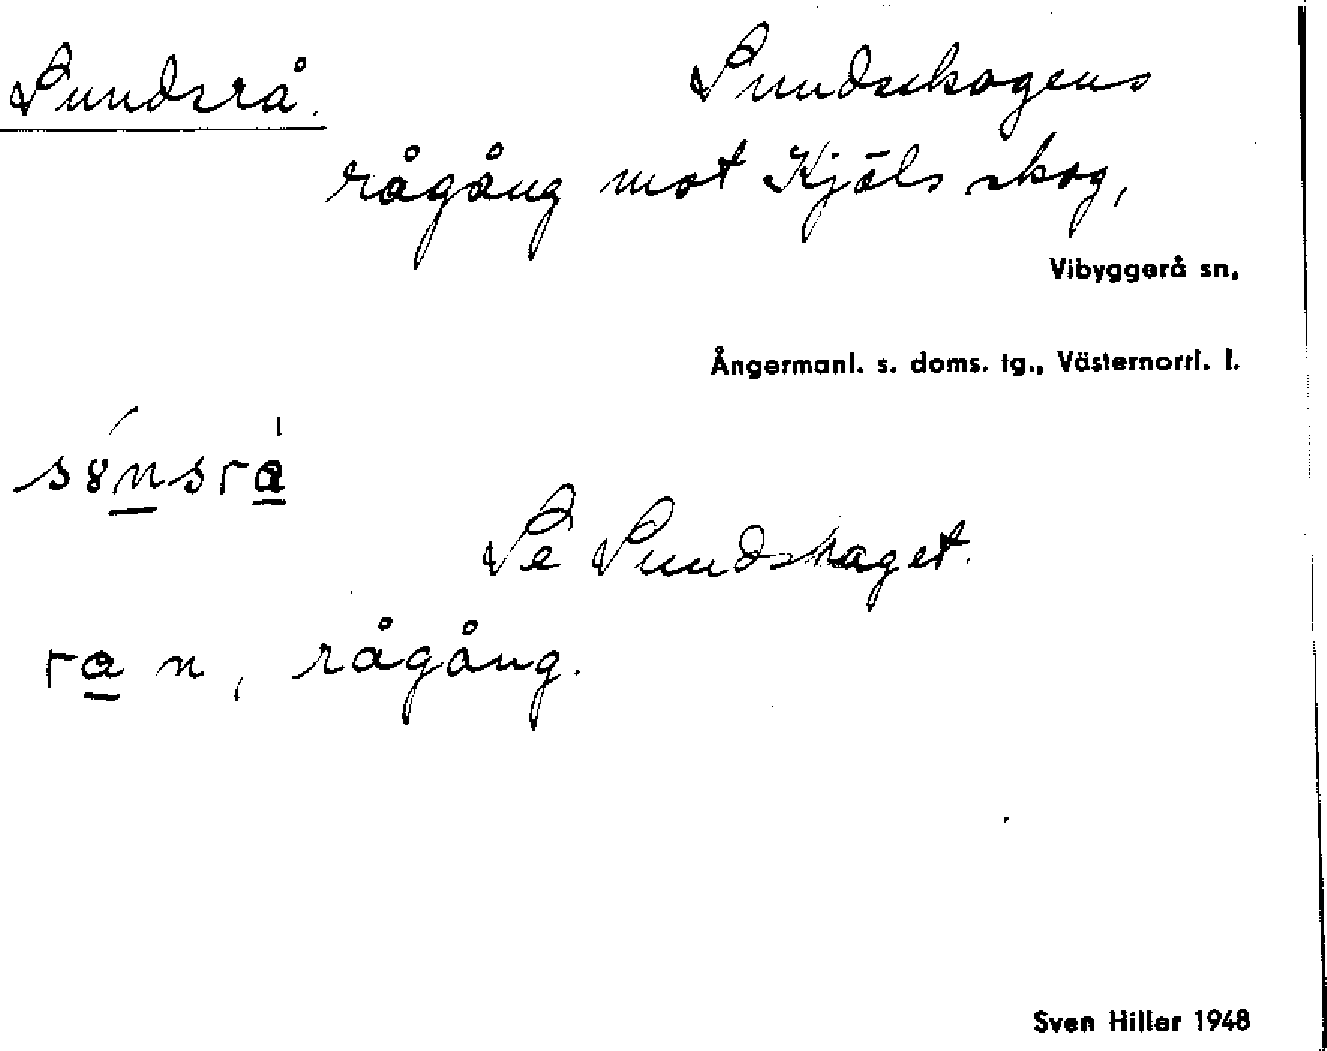 Sundsrå. Sundsskogens
rågång mot Kjäls skog,
Vibyggerå sn.
Ångermanl. s. doms. tg., Västernorrl. l.
Se Sundshaget.
n, rågång.
Sven Hiller 1948